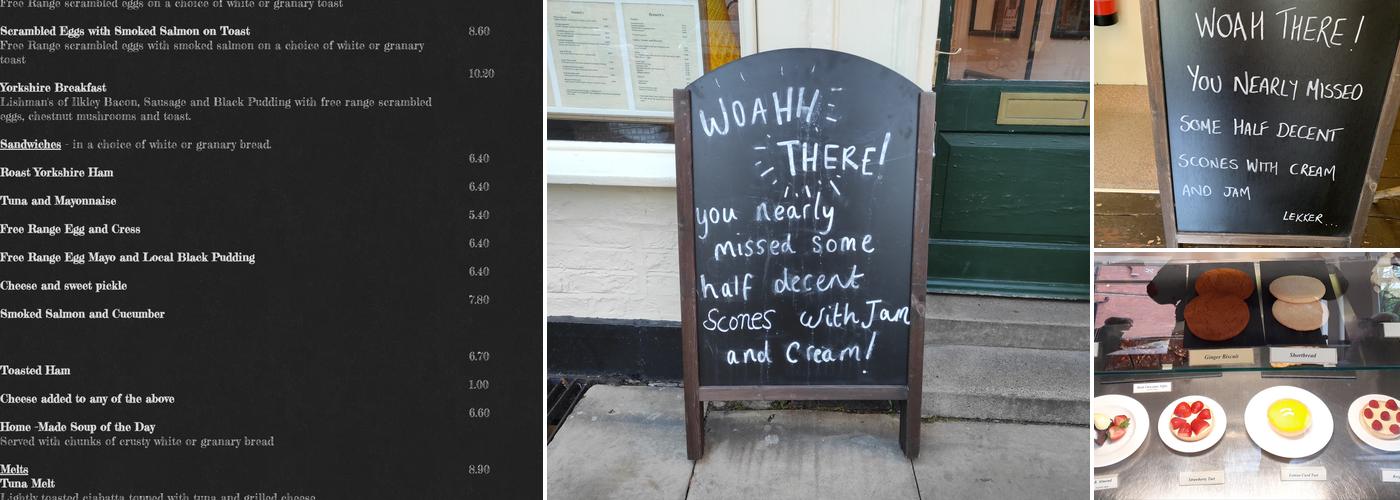 Free Range scrambled eggs on a choice of white or granary toast
Scrambled Eggs with Smoked Salmon on Toast
8.60
Free Range scrambled eggs with smoked salmon on a choice of white or granary
toast
10.20
Yorkshire Breakfast
Lishman's of Ilkley Bacon, Sausage and Black Pudding with free range scrambled
eggs, chestnut mushrooms and toast.
Sandwiches - in a choice of white or granary bread.
6.40
Roast Yorkshire Ham
6.40
Tuna and Mayonnaise
5.40
Free Range Egg and Cress
6.40
Free Range Egg Mayo and Local Black Pudding
6.40
Cheese and sweet pickle
7.80
Smoked Salmon and Cucumber
6.70
Toasted Ham
1.00
Cheese added to any of the above
6.60
Home -Made Soup of the Day
Served with chunks of crusty white or granary bread
Melts
8.90
Tuna Melt
Lightly toasted ciabatta topped with tuna and grilled cheese
WOAHH
THERE!
you nearly
missed some
half decent
Scones with Jam
and Cream!
WOAH THERE!
YOU NEARLY MISSED
SOME HALF DECENT
SCONES WITH CREAM
AND JAM
LEKKER...
Ginger Biscuit
Shortbread
Strawberry Tart
Lemon Curd Tart